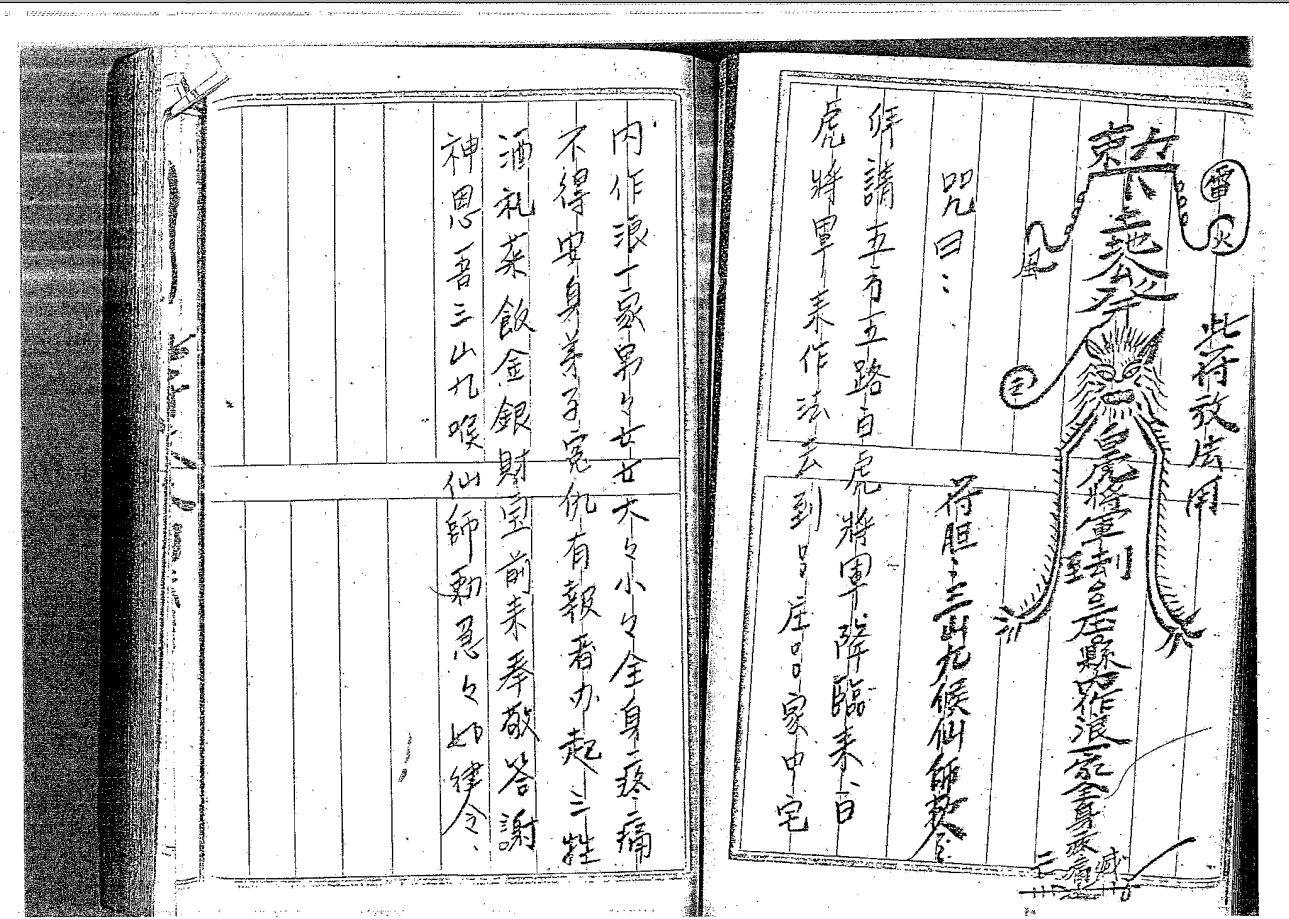 此符放法用
雷
火
風
土地公
皇虎將軍去到
庄縣內作浪一家全身疼痛
符胆：三山九候仙師敕令：
咒曰：
拜請五方五路白虎將軍降臨來白
虎將軍來作法去到吕庄吕家中宅
内作浪一家男々女女大々小々全身疼痛
不得安身弟子寃仇有報着办起三牲
酒礼菜飯金銀財宝前来奉敬答謝
神恩吾三山九喉仙師勅急々如律令